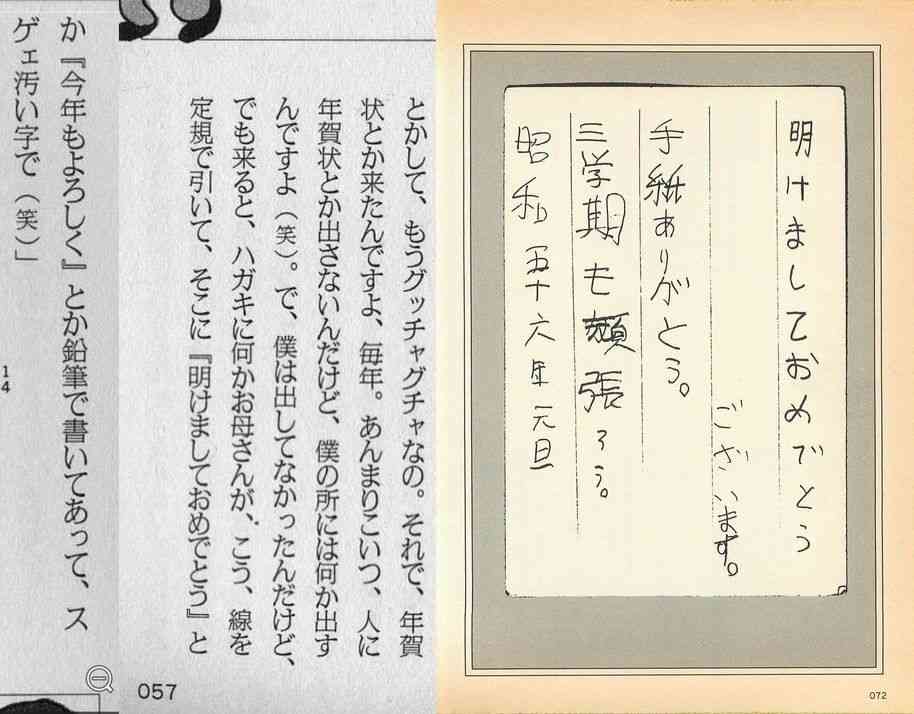 明けましておめでとう
ございます。
手紙ありがとう。
三学期も頑張ろう。
昭和五十六年元旦
072
とかして、もうグッチャグチャなの。それで、年賀
状とか来たんですよ、毎年。あんまりこいつ、人に
年賀状とか出さないんだけど、僕の所には何か出す
んですよ（笑）。で、僕は出してなかったんだけど、
でも来ると、ハガキに何かお母さんが、こう、線を
定規で引いて、そこに『明けましておめでとう』と
057
か『今年もよろしく』とか鉛筆で書いてあって、ス
ゲェ汚い字で（笑）」
14